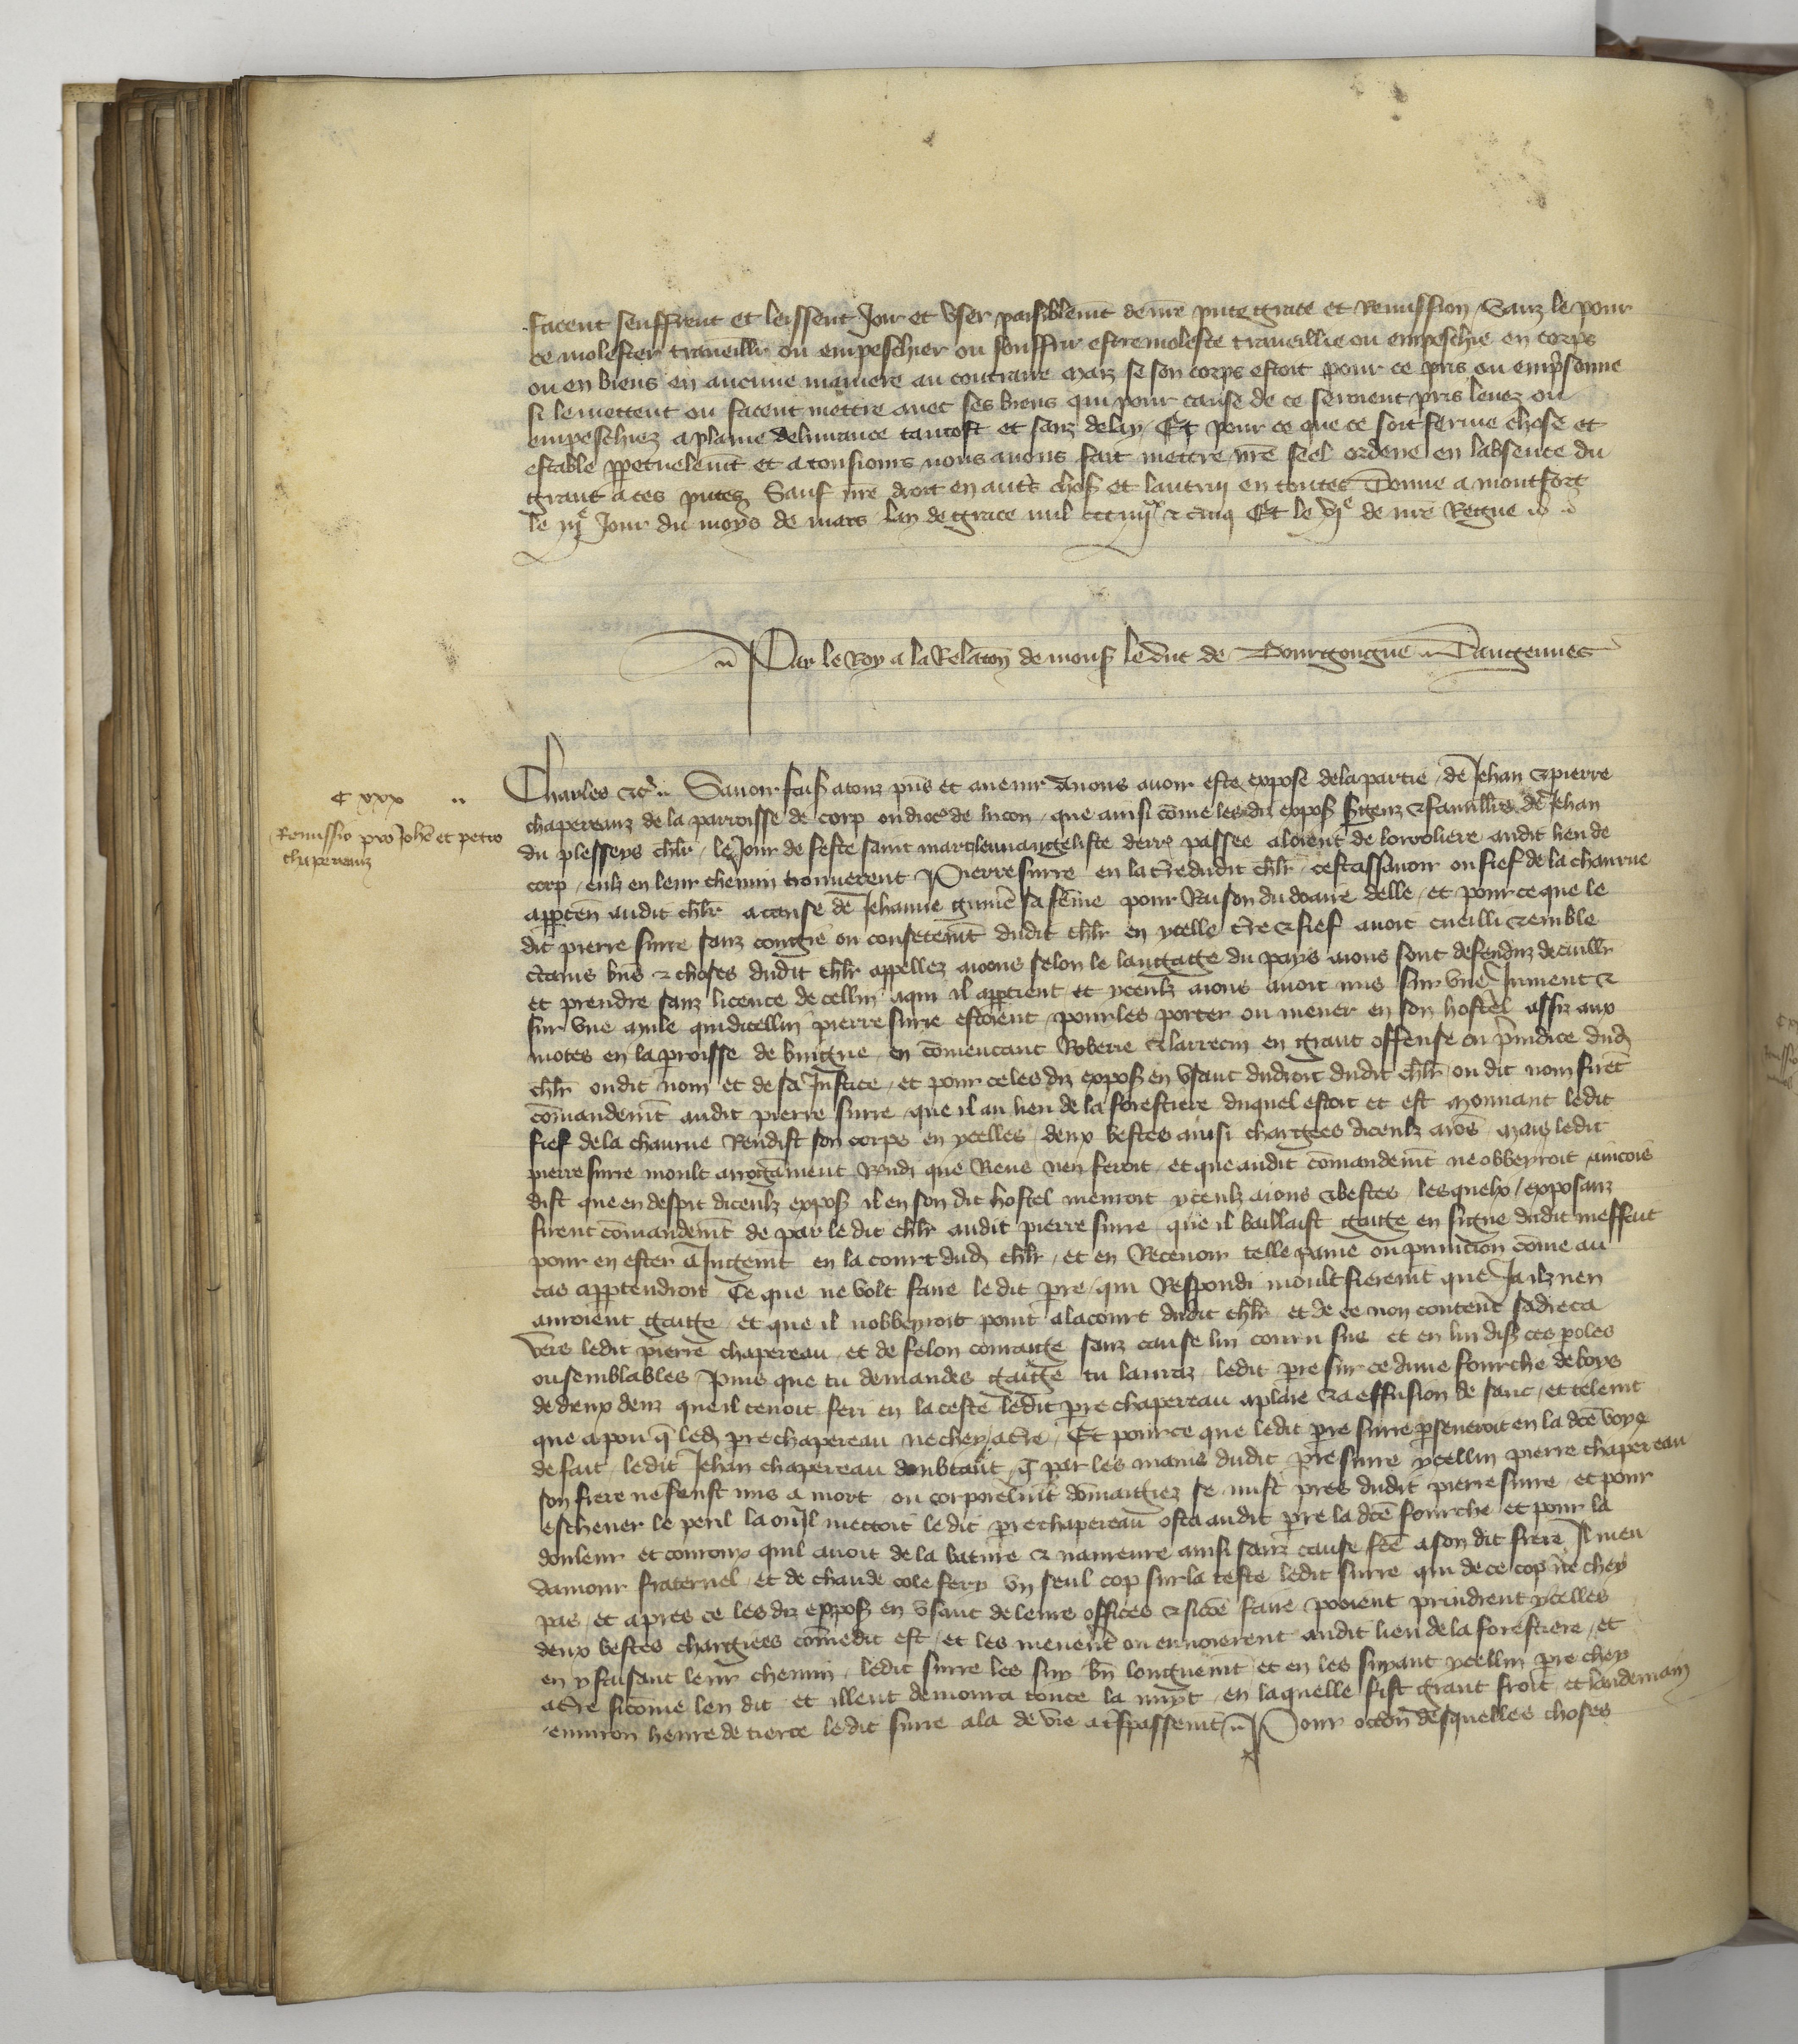 facent seuffrent et leissent Joir et user paisiblemt de nre pnte grace et Remission sanz le pour
ce molester travueillir ou empeschier ou souffrir estre moleste traveillie ou empeschie en corps
ou en biens en aucune maniere au contraire maiz se son corps estoit pour ce pris ou emprsonne
si le mettent ou facent mettre avec ses biens qui pour cause de ce seroient pris levez ou
empeschiez a plaine delivrance tantost et sanz delay Et pour ce que ce soit ferme chose et
estable ppetuelemt et a tousiours nous avons fait mettre nre seel ordene en labsence du
grant a ces pntes Sauf nre droit en autres chos et lautruy en toutes Donne a montfort
le iije Jour du moys de mars lan de grace mil ccciiijxx & cinq Et le vje de nre Regne
Par le Roy a la Relacon de mons le duc de Bourgongne Dangennes
C xxx
Remissio pro Johe et petro
chapereauz
Charles &c Savoir fais a touz pns et avenir a nous avoir este expose de la partie de Jehan & pierre
chapereauz de la parroisse de corp ou dioce de lucon que ainsi come les diz expos sgenz & familliers de Jehan
du plesseys chlr le Jour de feste saint marc leuuangeliste derre passee aloient de lorvoliere audit lieu de
corp eulz en leur chemin trouverent Pierre surre en la tre dudit chlr cestassavoir ou fief de la chaurue
appten audit chlr a cause de Jehanne sa feme pour Raison du doaire delle et pour ce que le
dit pierre surre sanz congie ou consetemt dudit chlr en ycelle tre & fief avoit cueilli & emble
ctains bns & choses dudit chlr appellez aions selon le langage du pays aions sont defenduz de cuillir
et prendre sanz licence de cellui a qui il apptient et yceulz aions avoit mis sur une Jument &
sur une asne qui dicellui pierre surre estoient pour les porter ou mener en son hostel assiz aux
motes en la proisse de buigne en comencant Roberie & larrecin en grant offense en priudice dud
chlr ou dit nom et de sa Justice et pour ce les diz expos en usant du droit dudit chlr ou dit nom firet
comandemt audit pierre surre que il au lieu de la forestiere duquel estoit et est mouvant ledit
fief de la chaurue Rendist son corps en ycelles deux bestes ainsi chargees diceulz aios mais ledit
pierre surre moult arrogament Rndi que Riens nen feroit et que audit comandemt ne obbeyroit aincois
dist que en despit diceulz expos il en son dit hostel menroit yceulz aions & bestes lesquelx exposanz
firent comandemt de par le dit chlr audit pierre surre que il baillast gaige en signe dudit meffait
pour en ester a Jugemt en la court dud chlr et en Recevoir telle paine ou punicion come au
cas apptendroit Ce que ne volt faire le dit pre qui Respondi moult fieremt que Ja ilz nen
auroient gaige et que il nobbeyroit point a la court dudit chlr et de ce non content sadreca
vers ledit pierre chapereau et de felon couraige sanz cause lui couru sus et en lui dist ces poles
ou semblables Puis que tu demandes gaige tu lauraz ledit pre sur ce dune fourche de boys
de deux denz que il tenoit feri en la teste ledit pre chapereau a plaie & a effusion de sanc et telemt
que a pou q led pre chapereau ne chey a tre Et pource que ledit pre surre pseveroit en la dce voye
de fait ledit Jehan chapereau doubtant q par les mains dudit pre surre ycellui pierre chapereau
son frere ne feust mis a mort ou corporelmt domaigiez se mist pres dudit pierre surre et pour
eschever le peril la ou Il mettoit le dit pre chapereau osta audit pre la dce fourche et pour la
douleur et courroux quil avoit de la bature & navreure ainsi sanz cause fce a son dit frere Il meu
damour fraternel et de chaude cole fery un seul cop sur la teste ledit surre qui de ce cop ne chey
pas et apres ce les diz expos en usant de leurs offices & sicoe faire povient prindrent ycelles
deux bestes chargees come dit est et les menerent ou envoierent audit lieu de la forestiere et
en y faisant leur chemin ledit surre les suy bn longuemt et en les suyant ycellui pre chey
a tre sicome len dit et illeut demoura toute la nuyt en laquelle fist grant froit et landemain
environ heure de tierce le dit surre ala de vie a trespassemt Pour occon desquelles choses